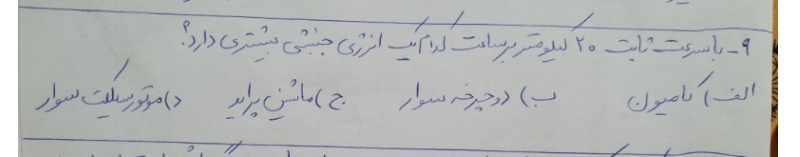 ۹- با سرعت ثابت ۲۰ کیلومتر بر ساعت کدام یک انرژی جنبشی بیشتری دارد؟
الف) کامیون ب) دوچرخه سوار ج) ماشین پراید د) موتور سیکلت سوار